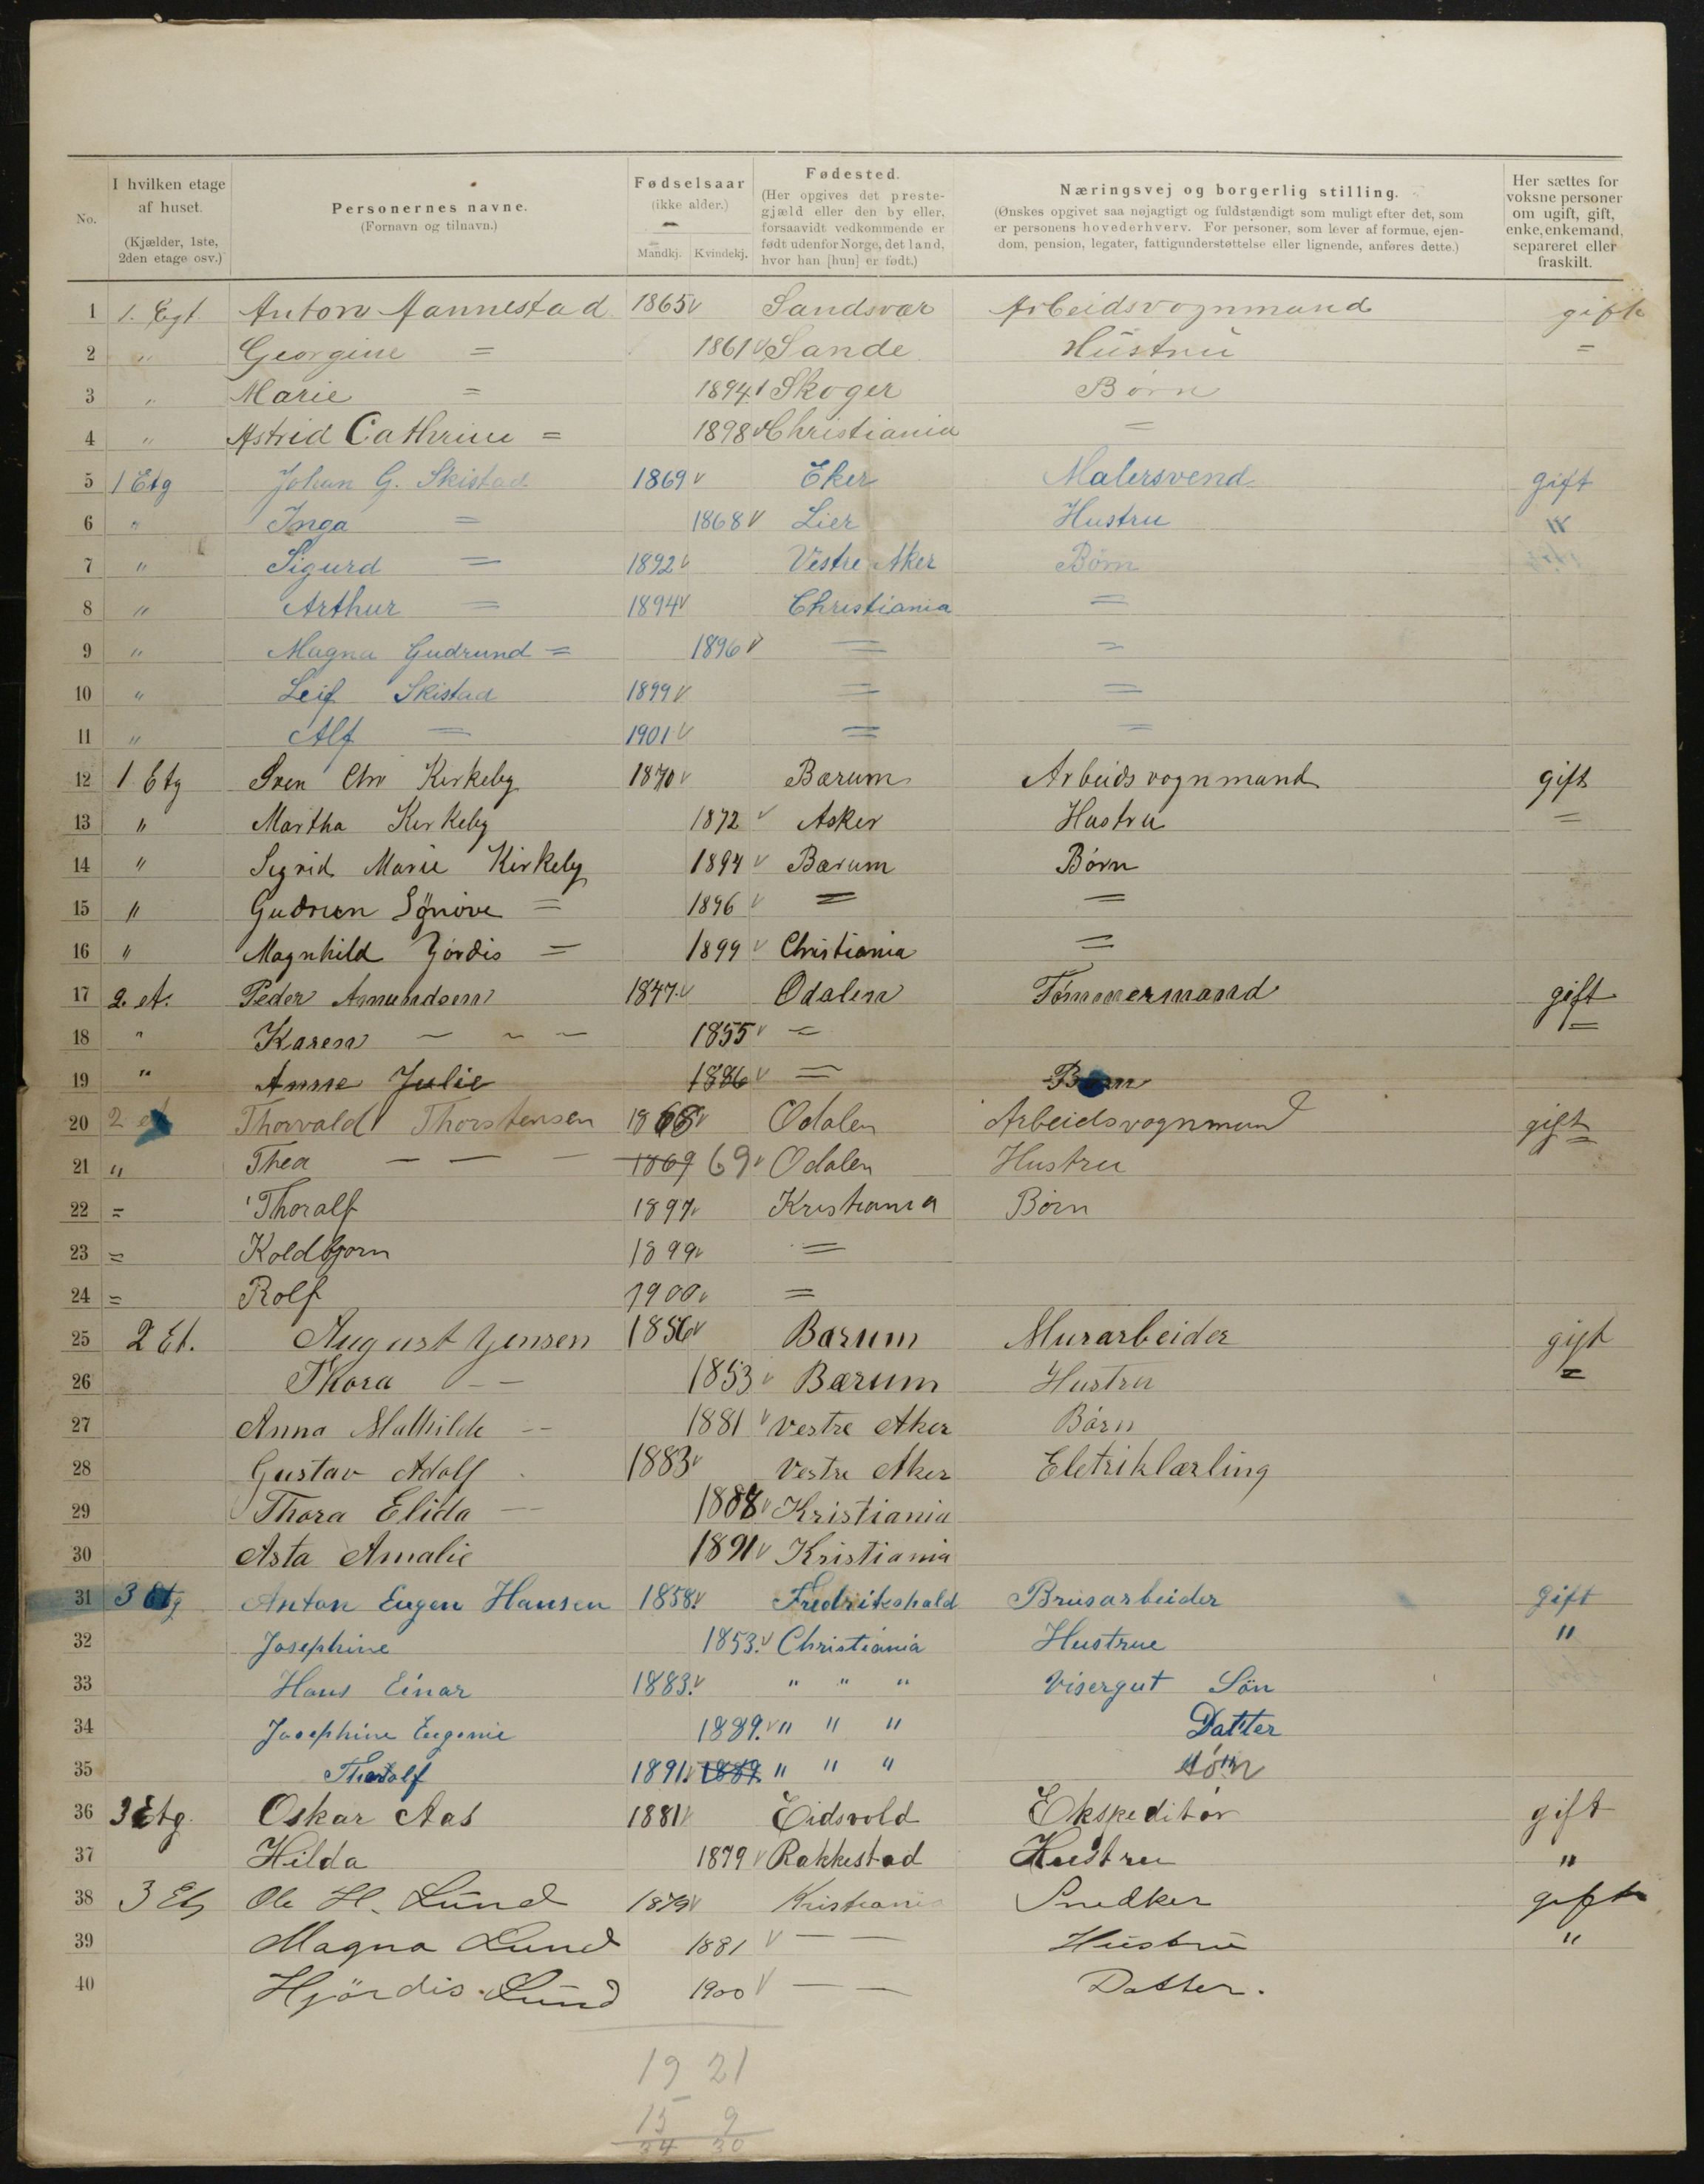 No.
I hvilken etage af huset. (Kjælder, 1ste, 2den etage osv.)
Personernes navne. (Fornavn og tilnavn.)
Fødselsaar (ikke alder.) Mandkj. Kvindekj.
Fødested. (Her opgives det prestegjæld eller den by eller, forsaavidt vedkommende er født udenfor Norge, det land, hvor han [hun] er født.)
Næringsvej og borgerlig stilling. (Ønskes opgivet saa nøjagtigt og fuldstændigt som muligt efter det, som er personens hovederhverv. For personer, som lever af formue, ejendom, pension, legater, fattigunderstøttelse eller lignende, anføres dette.)
Her sættes for voksne personer om ugift, gift, enke, enkemand, separeret eller fraskilt.
1 1. Egt. Anton Aannestad 1865 v Sandsvær Arbeidsvognmand gift
2 " Georgine = 1861 v Sande Hustru =
3 " Marie = 1894 v Skoger Børn
4 " Astrid Cathrine = 1898 v Christiania =
5 1 Etg Johan G. Skistad 1869 v Eker Malersvend gift
6 " Inga = 1868 v Lier Hustru "
7 " Sigurd = 1892 v Vestre Aker Børn
8 " Arthur = 1894 v Christiania =
9 " Magna Gudrund = 1896 v = =
10 " Leif Skistad 1899 v = =
11 " Alf = 1901 v = =
12 1 Etg Sven Chr Kirkeby 1870 v Bærum Arbeids vognmand gift
13 " Martha Kirkeby 1872 v Asker Hustru =
14 " Sigrid Marie Kirkeby 1894 v Bærum Børn
15 " Gudrun Sÿnøve = 1896 v = =
16 " Magnhild Hjørdis = 1899 v Christiania =
17 2. et. Peder Amundsen 1847 v Odalen Tømmermand gift
18 " Karen — — — 1855 v = =
19 " Anne Julie 1886 v = Børn
20 2 et Thorvald Thorstensen 1868 v Odalen Arbeidsvognmand gift
21 " Thea — — — 1869 69 v Odalen Hustru =
22 = Thoralf 1897 v Kristiania Børn
23 = Koldbjørn 1899 v =
24 = Rolf 1900 v =
25 2 Et. August Jensen 1856 v Bærum Murarbeider gift
26 Thora — — 1853 v Bærum Hustru =
27 Anna Mathilde — 1881 v Vestre Aker Børn
28 Gustav Adolf 1883 v Vestre Aker Eletriklærling
29 Thora Elida — 1887 v Kristiania
30 Asta Amalie 1891 v Kristiania
31 3 Etg Anton Eugen Hansen 1858. v Fredrikshald Brusarbeider Gift
32 Josephine 1853. v Christiania Hustrue "
33 Hans Einar 1883. v " " " Visergut Søn
34 Josephine Eugenie 1889. v " " " Datter
35 Thoralf 1891. v 1889. " " " Søn
36 3 Etg. Oskar Aas 1881 v Eidsvold Ekspeditør gift
37 Hilda 1879 v Rakkestad Hustru "
38 3 Etg Ole H. Lund 1879 v Kristiania Snedker gift
39 Magna Lund 1881 v — — Hustru "
40 Hjördis Lund 1900 v — — Datter.
19 21
15 9
34 30